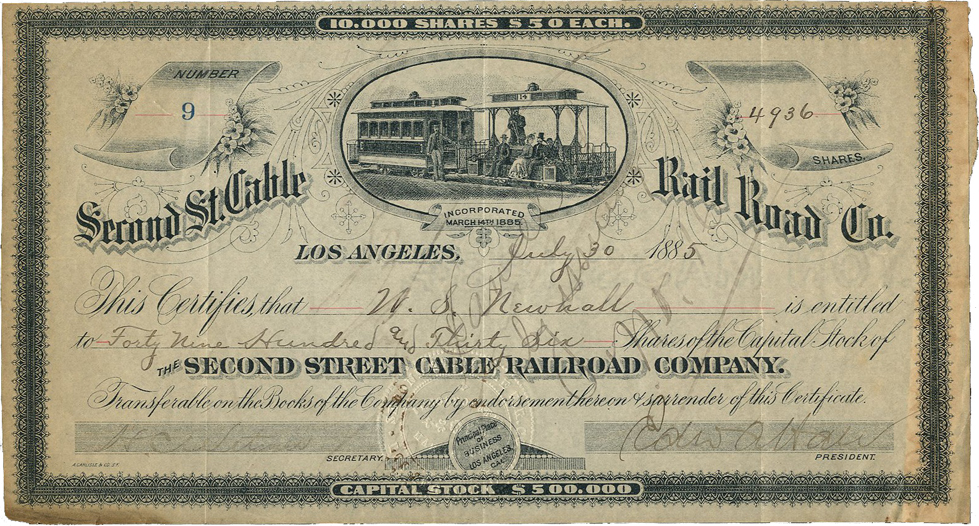 10.000 SHARES $50 EACH.
NUMBER
9
4936
SHARES.
14
Second St. Cable Rail Road Co.
INCORPORATED
MARCH 14TH 1885.
LOS ANGELES, July 30 1885
This Certifies, that W. S. Newhall is entitled
to Forty Nine Hundred and Thirty Six Shares of the Capital Stock of
THE SECOND STREET CABLE RAILROAD COMPANY.
Transferable on the Books of the Company by endorsement hereon & surrender of this Certificate.
Principal Place
of
BUSINESS
LOS ANGELES
CAL.
SECRETARY.
PRESIDENT.
A. CARLISLE & CO. S.F.
CAPITAL STOCK $500.000